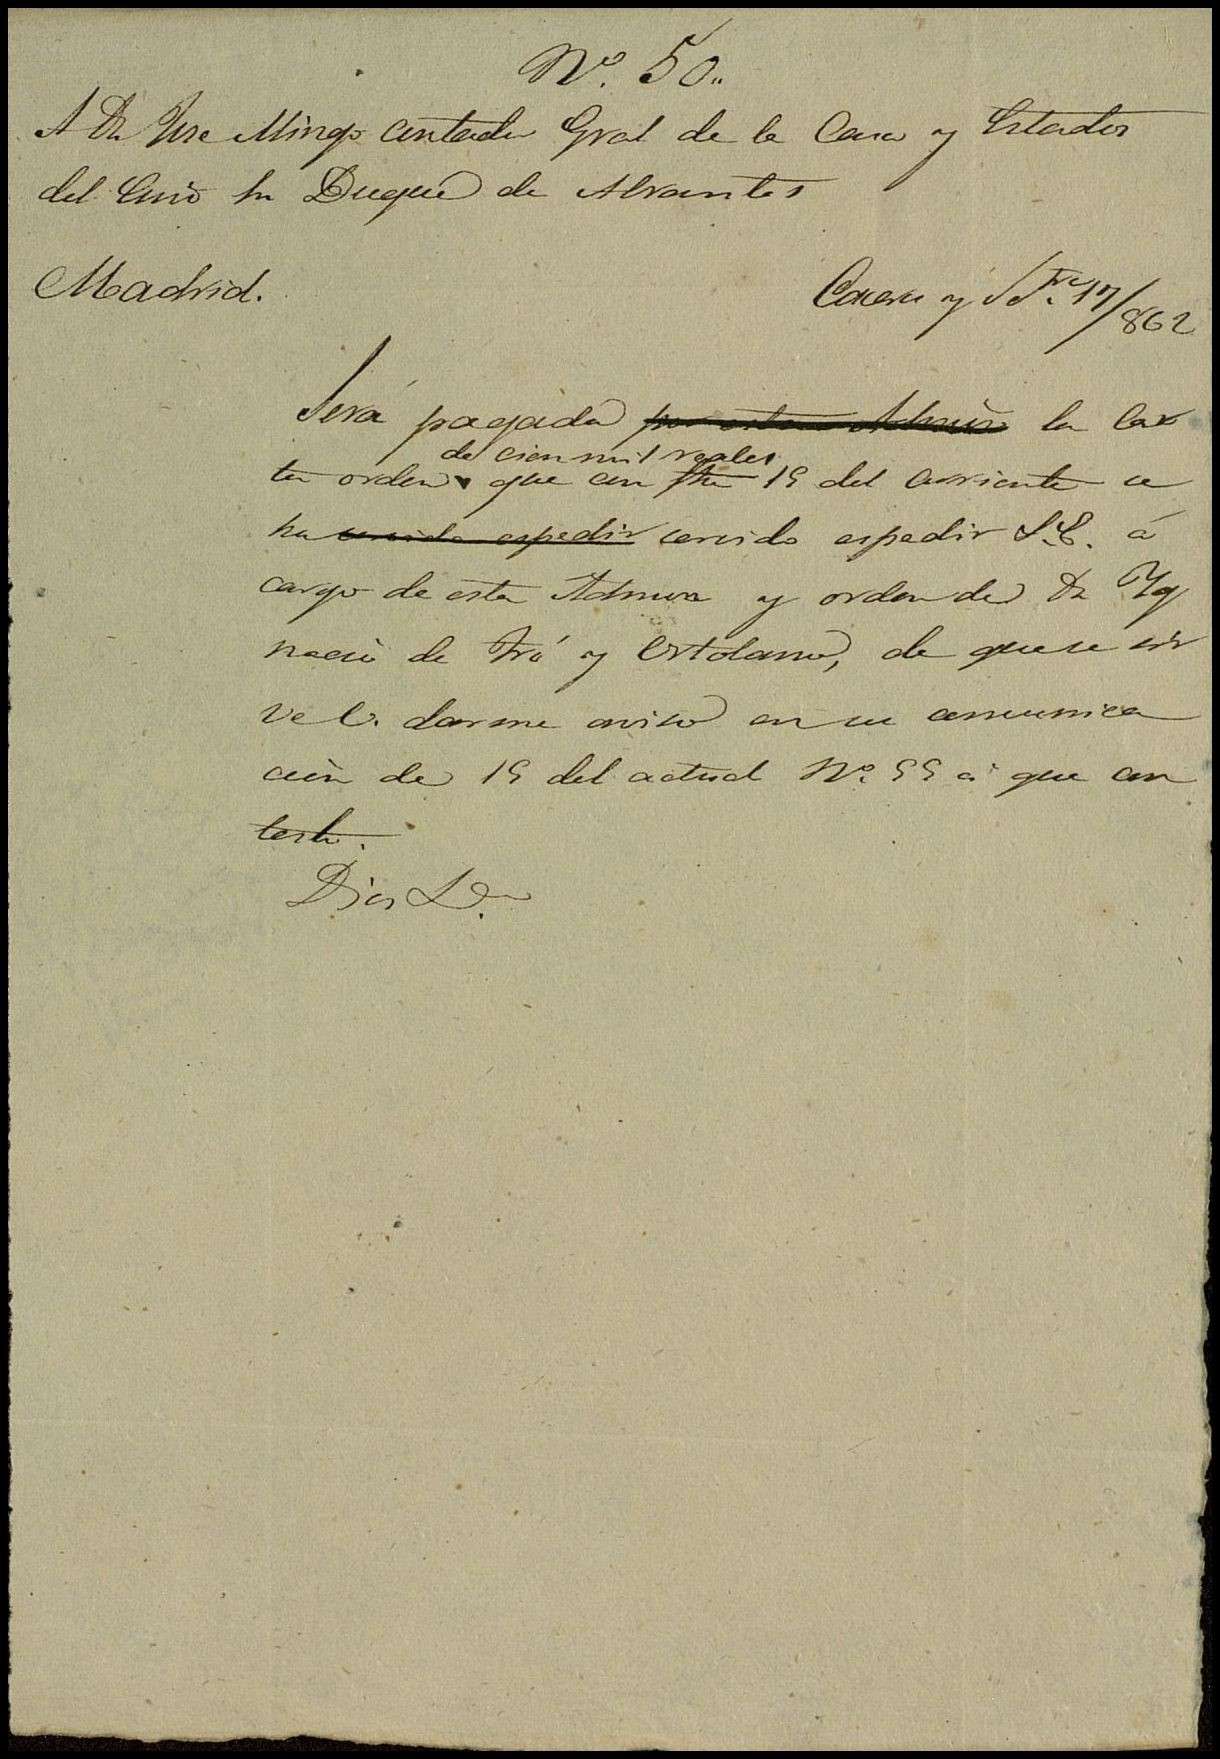 Nº. 50..
A Dn Jose Mingo contador Gral de la Casa y Estados
del Exmo Sr Duque de Abrantes
Madrid.
Caceres y 17/862
Será pagada por esta Admón la car
de cien mil reales
ta orden que con fha 15 del corriente se
ha servido espedir servido espedir S.E. á
cargo de esta Admon y orden de Dn Yg
nacio de y Ortolano, de que se sir
ve V. darme aviso en su comunica
ción de 15 del actual Nº. 55 á que con
testo.
Dios